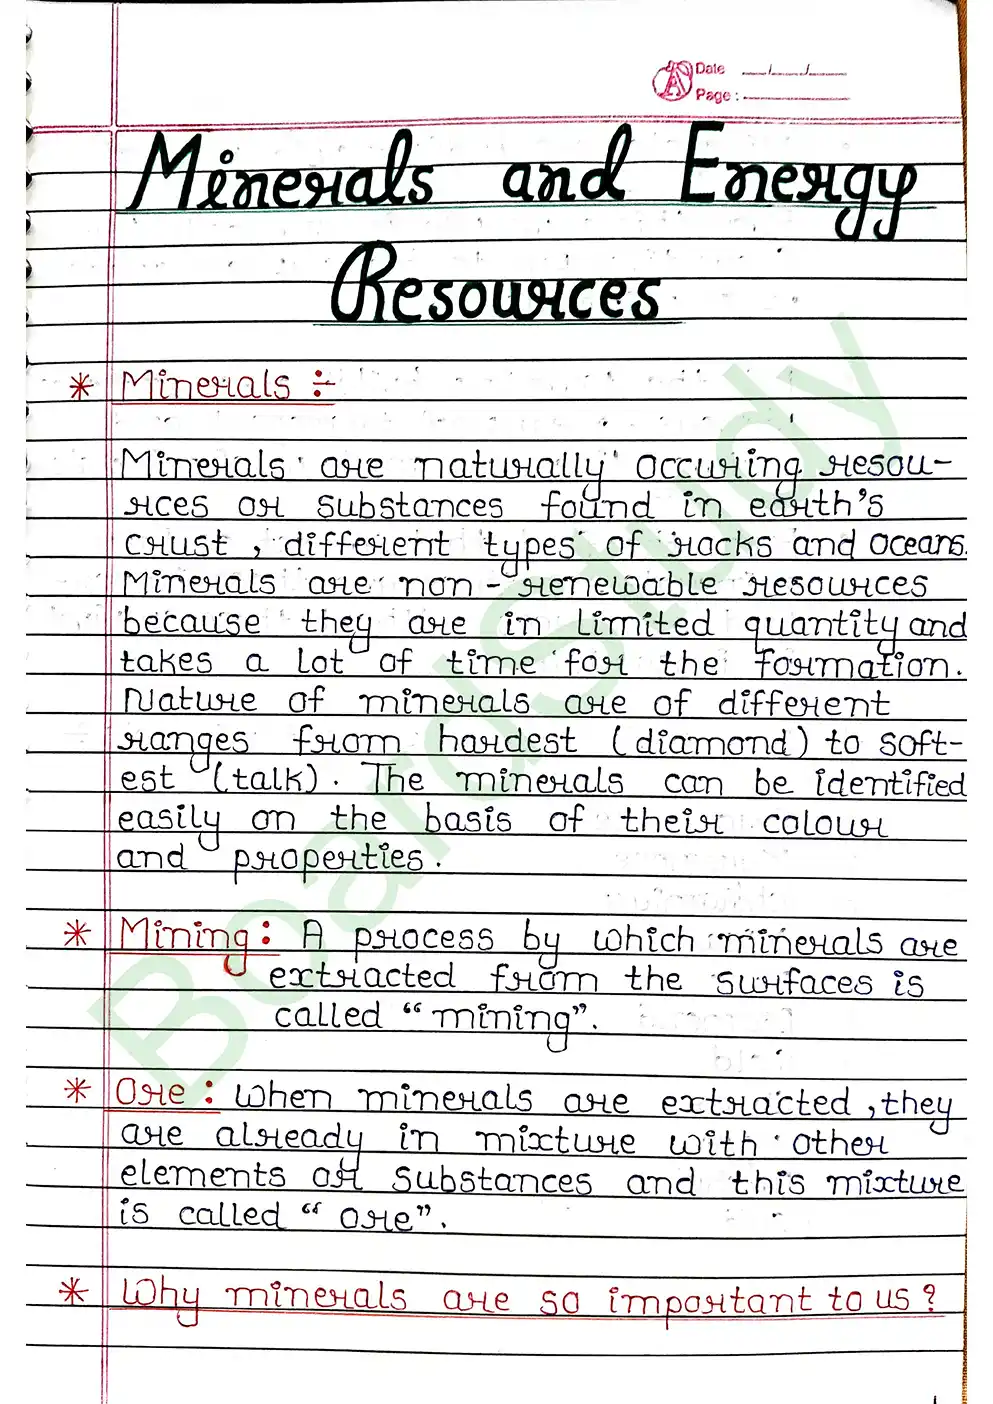 Date __/__/__
Page :
Minerals and Energy
Resources
* Minerals :-
Minerals are naturally occuring resou-
rces or substances found in earth's
crust , different types of rocks and oceans.
Minerals are non - renewable resources
because they are in limited quantity and
takes a lot of time for the formation.
Nature of minerals are of different
ranges from hardest (diamond) to soft-
est (talk). The minerals can be identified
easily on the basis of their colour
and properties.
* Mining : A process by which minerals are
extracted from the surfaces is
called "mining".
* Ore : When minerals are extracted , they
are already in mixture with other
elements or substances and this mixture
is called "ore".
* Why minerals are so important to us ?
BoardStudy